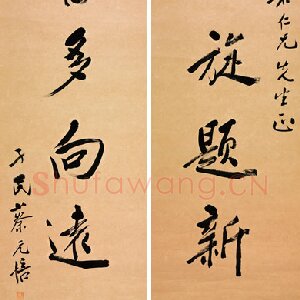 仁兄先生正
旋題新
多向遠
孑民蔡元培
Shufawang.CN